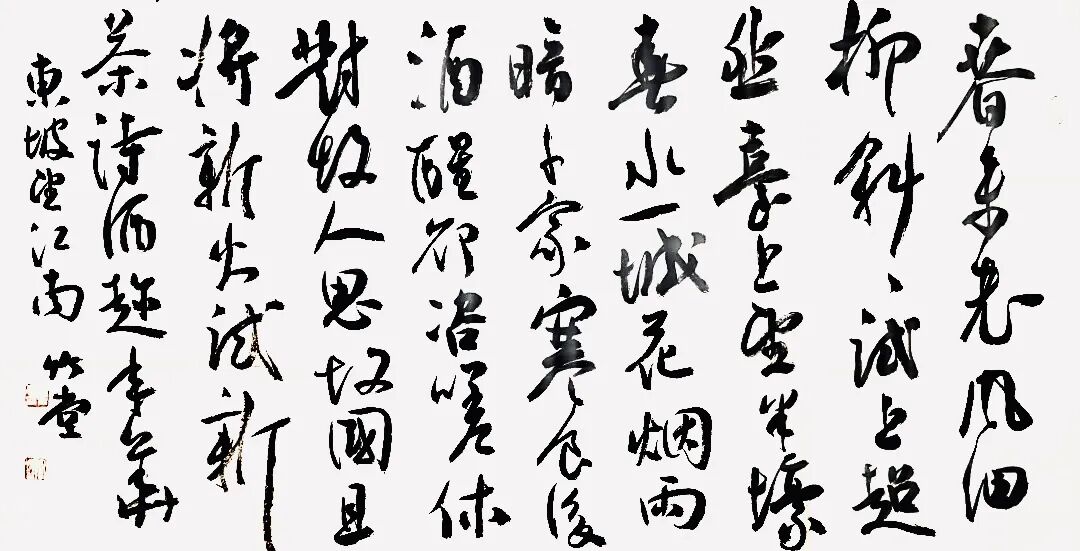 春未老風細
柳斜々試上超
然臺上望半壕
春水一城花烟雨
暗千家寒食後
酒醒卻咨嗟休
對故人思故國且
將新火試新
茶詩酒趁年華
東坡望江南 竹堂